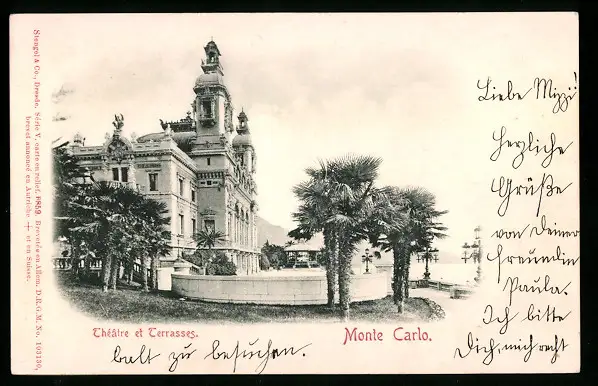 Stengel & Co., Dresde. Série V. carte en relief. 8859. Brevetés en Allem. D.R.G.M. No. 103130,
brevet annoncé en Autriche + et en Suisse.
Liebe Mizzi!
Herzliche
Grüße
von Deiner
Freundin
Paula.
Ich bitte
Dich, mich recht
Théâtre et Terrasses.
Monte Carlo.
balt zu besuchen.